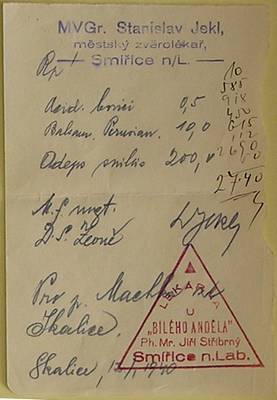 MVGr. Stanislav Jekl,
městský zvěrolékař,
Smiřice n/L.
Rp/
Acid. borici 0,5
Balsam. Peruvian. 10,0
Adeps suillus 200,0
10
585
918
450
615
112
2690
50
27·40
M. f. ungt.
D. S. Zevně
Pro p. Machka
Skalice.
Skalice, 1940
LÉKÁRNA
U
"BÍLÉHO ANDĚLA"
Ph. Mr. Jiří Stříbrný
Smiřice n. Lab.